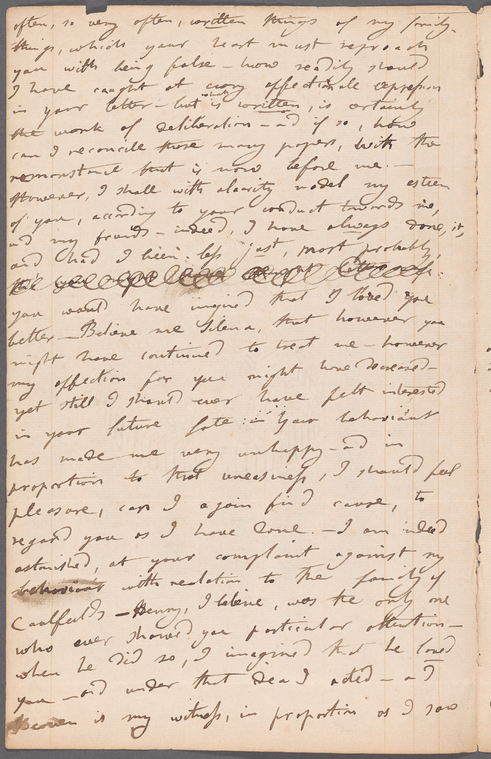 often, so very often, written things of my family.
things, which your heart must reproach
you with being false – how readily should
I have caught at every affectionate expression
in your letter – but what is written, is certainly
the work of deliberation – and if so, how
can I reconcile these many papers, with the
remonstrance that is now before me. –
However, I shall with alacrity model my esteem
of you, according to your conduct towards me,
and my friends – indeed, I have always done, it,
and had I been less just, most probably,
you would have imagined that I loved you
better – Believe me Selena, that however you
might have continued to treat me – however
my affection for you might have decreased –
yet still I should ever have felt interested
in your future fate: – Your behaviour
has made me very unhappy – and in
proportion to that uneasiness, I should feel
pleasure, can I again find cause, to
regard you as I have done. – I am indeed
astonished, at your complaint against my
behaviour with realation to the family of
Caulfields – Henry, I believe, was the only one
who ever showed you particular attention –
when he did so, I imagined that he loved
you – and under that idea I acted – and
Heaven is my witness, in proportion as I saw